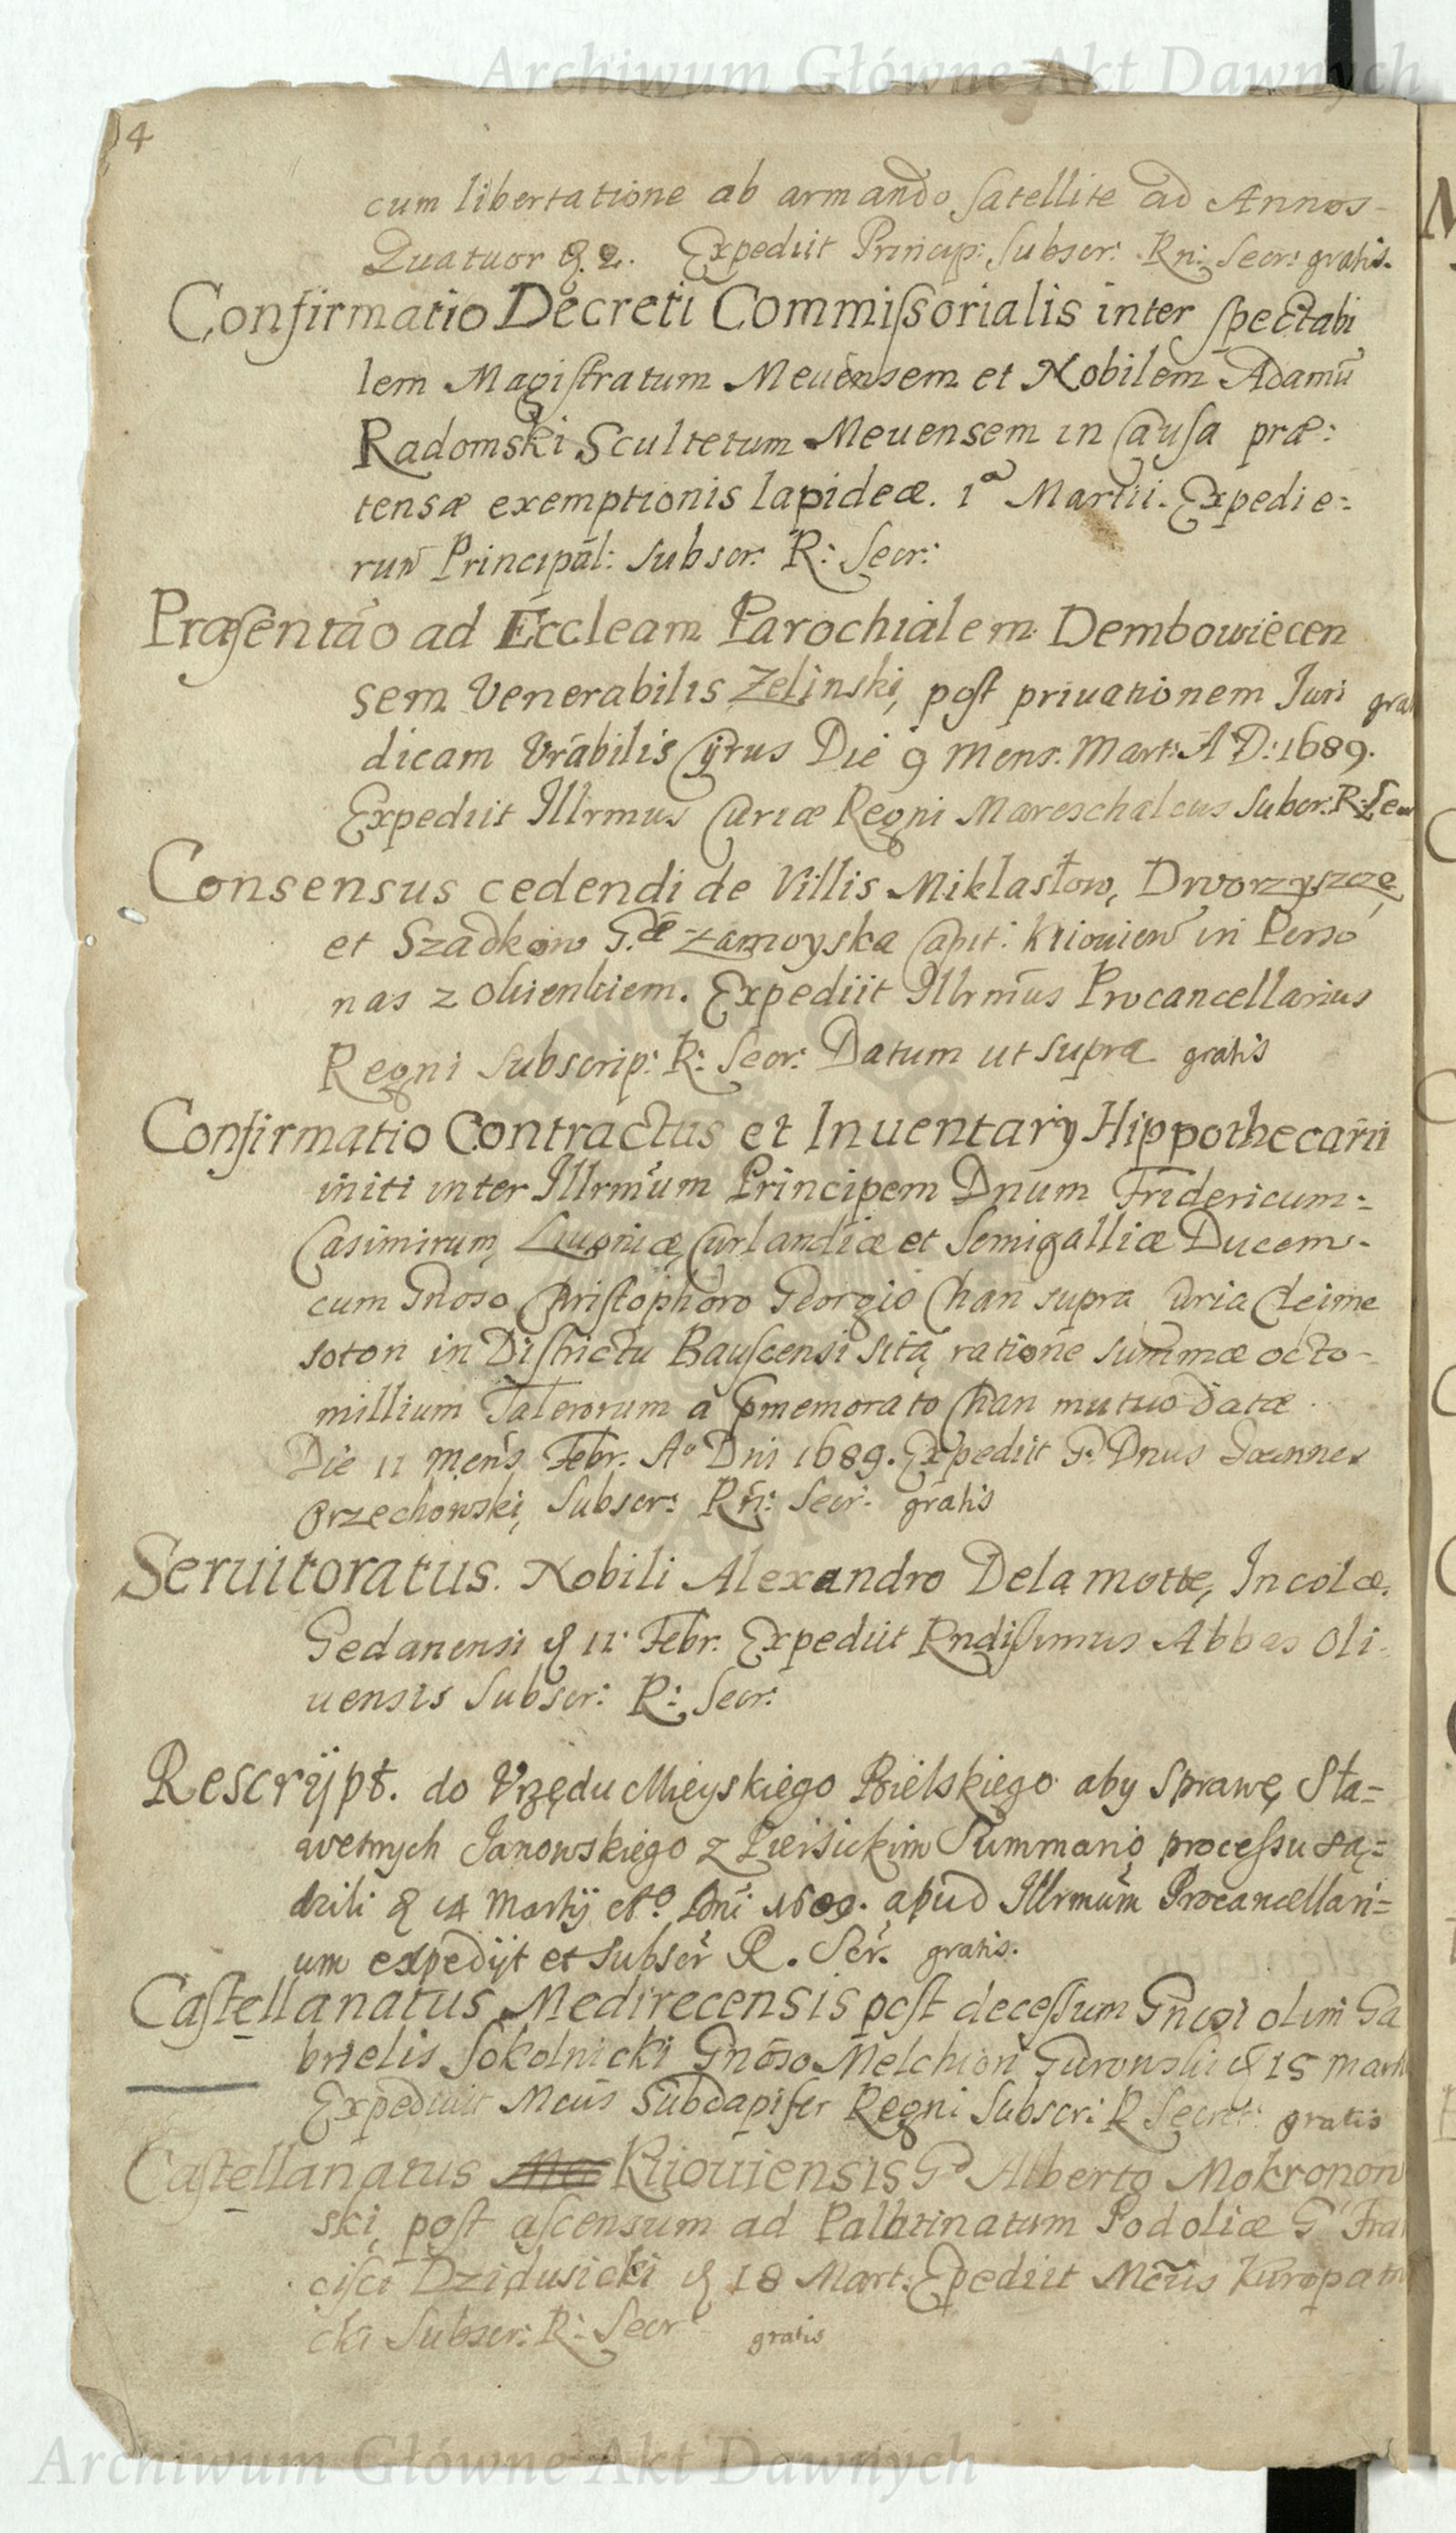 Archiwum Główne Akt Dawnych
4
cum libertatione ab armando satellite ad Annos
Quatuor Expediit Princip: Subscr: Rn: Secr: gratis.
Confirmatio Decreti Commissorialis inter spectabi
lem Magistratum Meuensem et Nobilem Adamū
Radomski Scultetum Meuensem in Causa præ:
tensæ exemptionis lapideæ. 1ª Martii. Expedie:
runt Principāl: Subscr. R: Secr:
Præsentāo ad Eccleam Parochialem Dembowiecen
sem Venerabilis Zelinski, post priuationem Juri gra
dicam Vrābilis Cyrus Die 9 Mens. Mart: A D: 1689.
Expediit Illrmus Curiæ Regni Mareschalcus Subcr: R: Se
Consensus cedendi de Villis Miklastow, Dworzyszcze,
et Szadkow G.æ Zamoyska Capit: Kiiouien in Perso
nas z Okienkiem. Expediit Illrm̄us Procancellarius
Regni Subscrip: R: Secr: Datum ut supra gratis
Confirmatio Contractus et Inuentarÿ Hippothecarii
initi inter Illrm̄um Principem Dnum Fridericum:
Casimirum, Curlandiæ et Semigalliæ Ducem
cum Gnoso Christophoro Georgio Chan supra Curia Cleime
soton in Districtu Bauscensi sitą, ratione summæ octo
millium Talerorum a pmemorato Chan mutuo datæ
Die 11 Mens Febr. Aº Dni 1689. Expediit G. Dnus Joannes
Orzechowski, Subscr: Rn̄: Secr. gratis
Seruitoratus. Nobili Alexandro Delamotte, Incolæ
Gedanensi 11 Febr. Expediit Rndissimus Abbas Oli
uensis Subscr: R: Secr:
Rescrÿpt. do Vrzędu Mieyskiego Bielskiego aby Sprawę, Sła=
wetnych Janowskiego z Summario processu są=
dzili 14 Martÿ Aº Dni 1689. apud Illrmum Procancellari=
um expedÿt et subscr R. Secr. gratis.
Castellanatus Medirecensis post decessum Gnosi olim Ga
brielis Sokolnicki Gnōso Melchiori Gurowski 15 Marti
Expediuit Mcus Subdapifer Regni Subscr: R Secret: gratis
Castellanatus Kiiouiensis Gº Alberto Mokronow
ski, post ascensum ad Palatinatum Podoliæ G Fra
cisci Dziduszicki 18 Mart: Epediit Mcus Kuropatni
cki Subscr: R: Secr gratis
Archiwum Główne Akt Dawnych